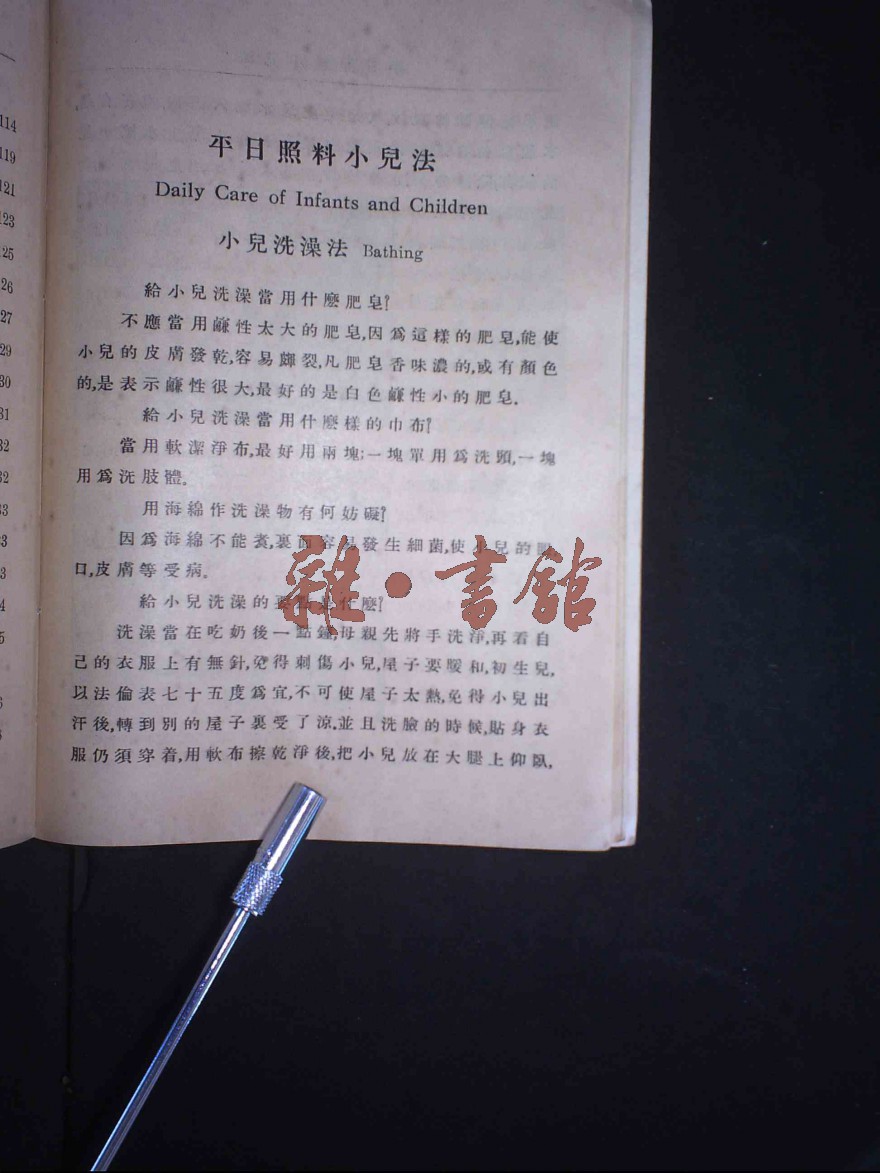 114
119
121
123
125
26
27
29
30
31
32
32
33
3
3
4
5
平日照料小兒法
Daily Care of Infants and Children
小兒洗澡法 Bathing
給小兒洗澡當用什麼肥皂?
不應當用鹻性太大的肥皂,因爲這樣的肥皂,能使
小兒的皮膚發乾,容易皴裂,凡肥皂香味濃的,或有顏色
的,是表示鹻性很大,最好的是白色鹻性小的肥皂.
給小兒洗澡當用什麼樣的巾布?
當用軟潔淨布,最好用兩塊:一塊單用爲洗頭,一塊
用爲洗肢體。
用海綿作洗澡物有何妨礙?
因爲海綿不能煑,裏面容易發生細菌,使小兒的眼,
口,皮膚等受病。
給小兒洗澡的要點是什麼?
洗澡當在吃奶後一點鐘,母親先將手洗淨,再看自
己的衣服上有無針,免得刺傷小兒,屋子要暖和,初生兒,
以法倫表七十五度爲宜,不可使屋子太熱,免得小兒出
汗後,轉到別的屋子裏受了涼,並且洗臉的時候,貼身衣
服仍須穿着,用軟布擦乾淨後,把小兒放在大腿上仰臥,
雜·書館